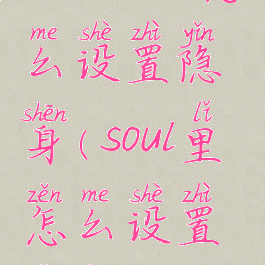 me shè zhì yǐn
么设置隐
shēn lǐ
身(soul里
zěn me shè zhì
怎么设置